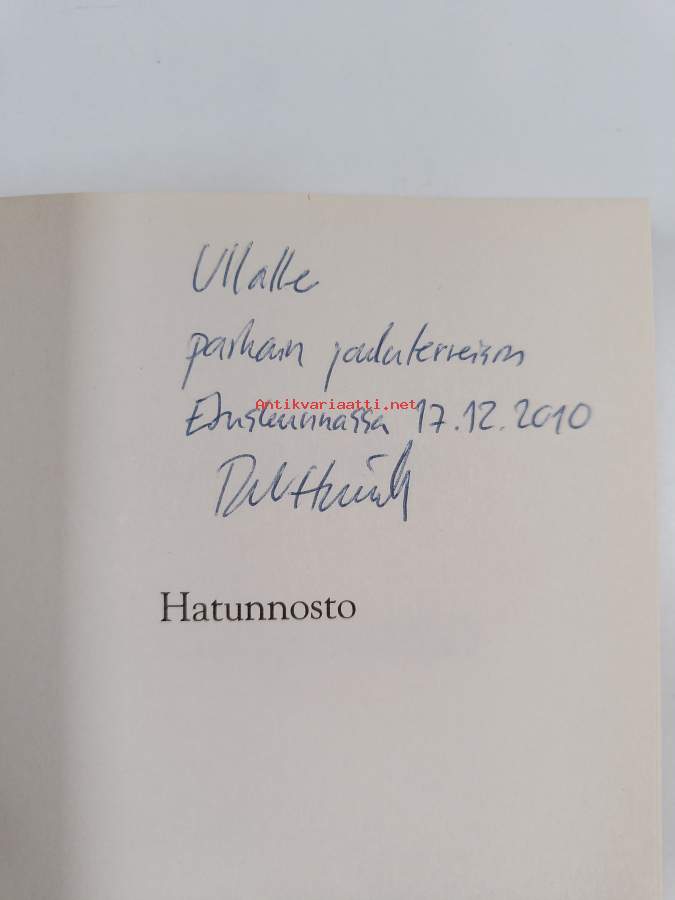 Ullalle
parhain jouluterveisin
Eduskunnassa 17.12.2010
Antikvariaatti.net
Hatunnosto